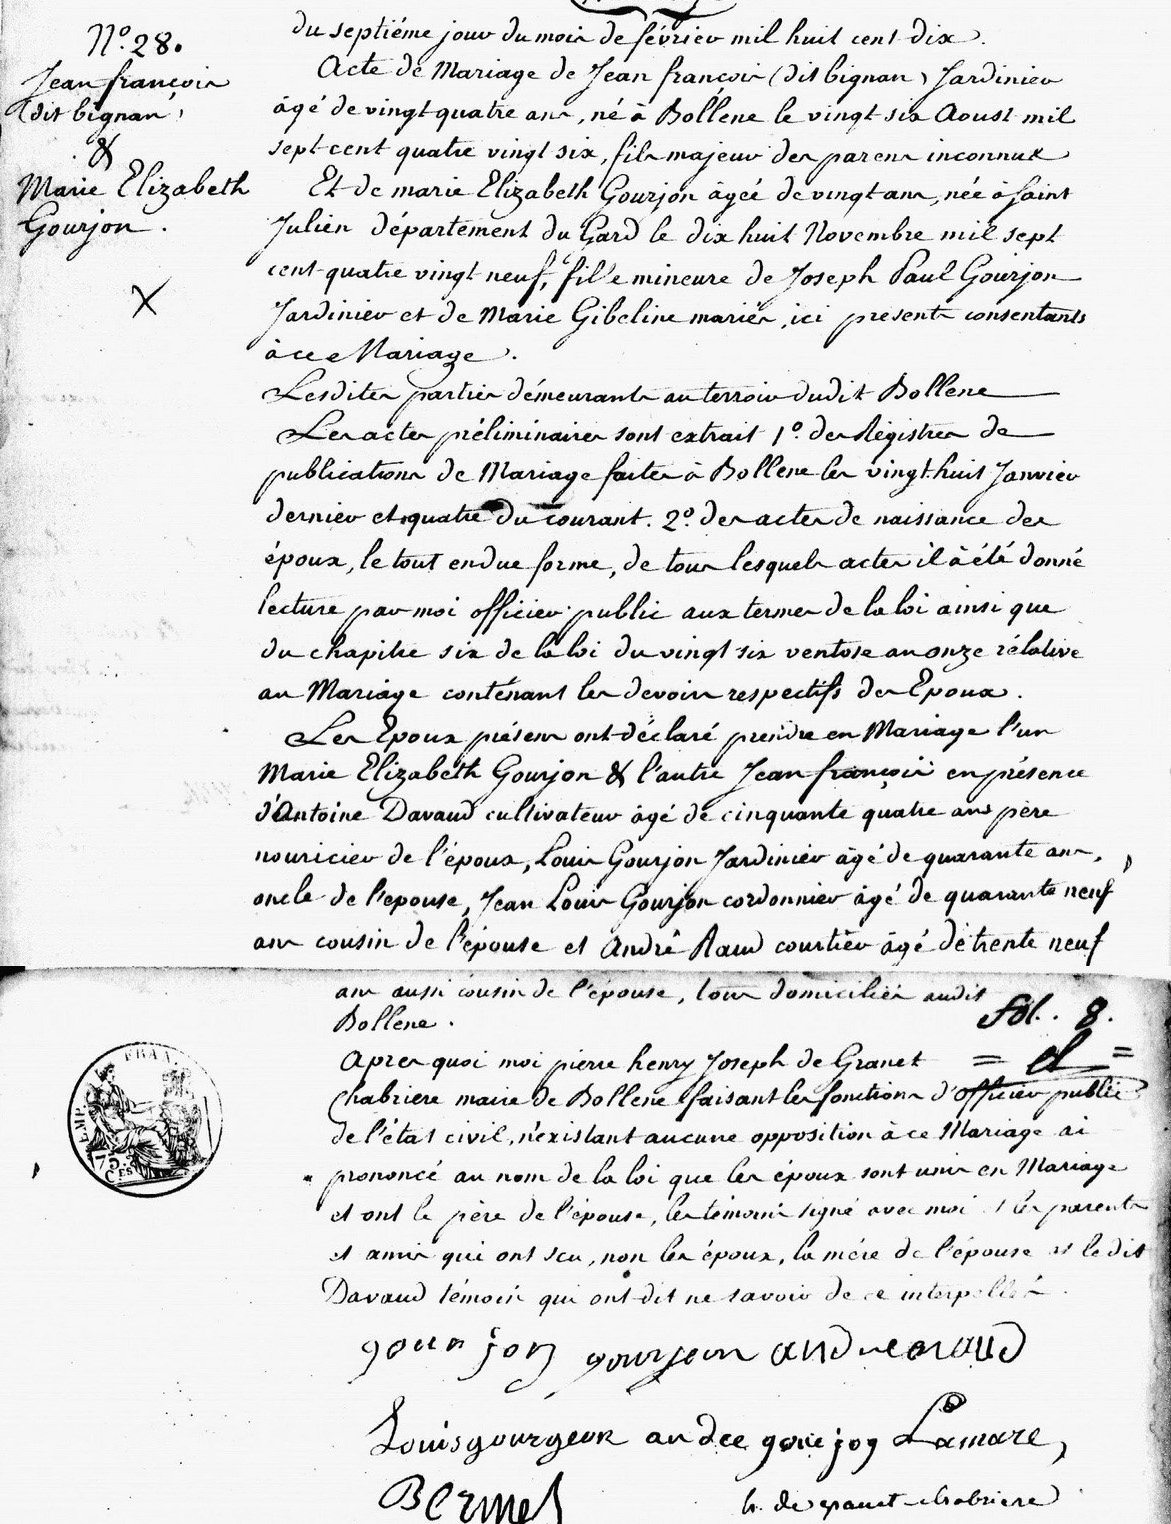 N.° 28.
Jean françois
(dit bignan)
&
Marie Elizabeth
Gourjon.
X
du septiéme jour du mois de février mil huit cent dix.
Acte de Mariage de Jean françois (dit bignan) Jardinier
âgé de vingt quatre ans, né à Bollène le vingt six Aoust mil
sept cent quatre vingt six, fils majeur des parens inconnus
Et de marie Elizabeth Gourjon âgée de vingt ans, née à Saint
Julien département du Gard le dix huit Novembre mil sept
cent quatre vingt neuf, fille mineure de Joseph Paul Gourjon
Jardinier et de Marie Gibeline mariés, ici présents consentants
à ce Mariage.
Lesdites parties démeurants au terroir dudit Bollene
Les actes préliminaires sont extrait 1.° des Régistres de
publications de Mariage faites à Bollene les vingt-huit Janvier
dernier et quatre du courant. 2.° des actes de naissance des
époux, le tout en due forme, de tous lesquels actes il à été donné
lecture par moi officier public aux termes de la loi ainsi que
du chapitre six de la loi du vingt six ventose an onze rélative
au Mariage conténant les devoirs respectifs des Epoux.
Les Epoux présens ont déclaré prendre en Mariage l'un
Marie Elizabeth Gourjon & l'autre Jean françois en présence
d'Antoine Davaud cultivateur âgé de cinquante quatre ans père
nouricier de l'époux, Louis Gourjon Jardiniér âgé de quarante ans,
oncle de l'epouse, Jean Louis Gourjon cordonnier âgé de quarante neuf
ans cousin de l'épouse et André Raud courtier âgé de trente neuf
ans aussi cousin de l'épouse, tous domiciliés audit
Bollene.
fol. 8.
Apres quoi moi pierre henry Joseph de Granet
Chabriere maire de Bollene faisant les fonctions d'officier public
de l'état civil, n'existant aucune opposition à ce Mariage ai
prononcé au nom de la loi que les époux sont unis en Mariage
et ont le père de l'épouse, les témoins signé avec moi les parents
et amis qui ont scu, non les époux, la mére de l'épouse et le dit
Davaud témoin qui ont dit ne savoir de ce interpellés.
EMP. FRAN.
75
CES
gourjon gourjeon andre raud
Louis gourgeon andre gourjon Lamare,
Bermes
h. de granet chabriere